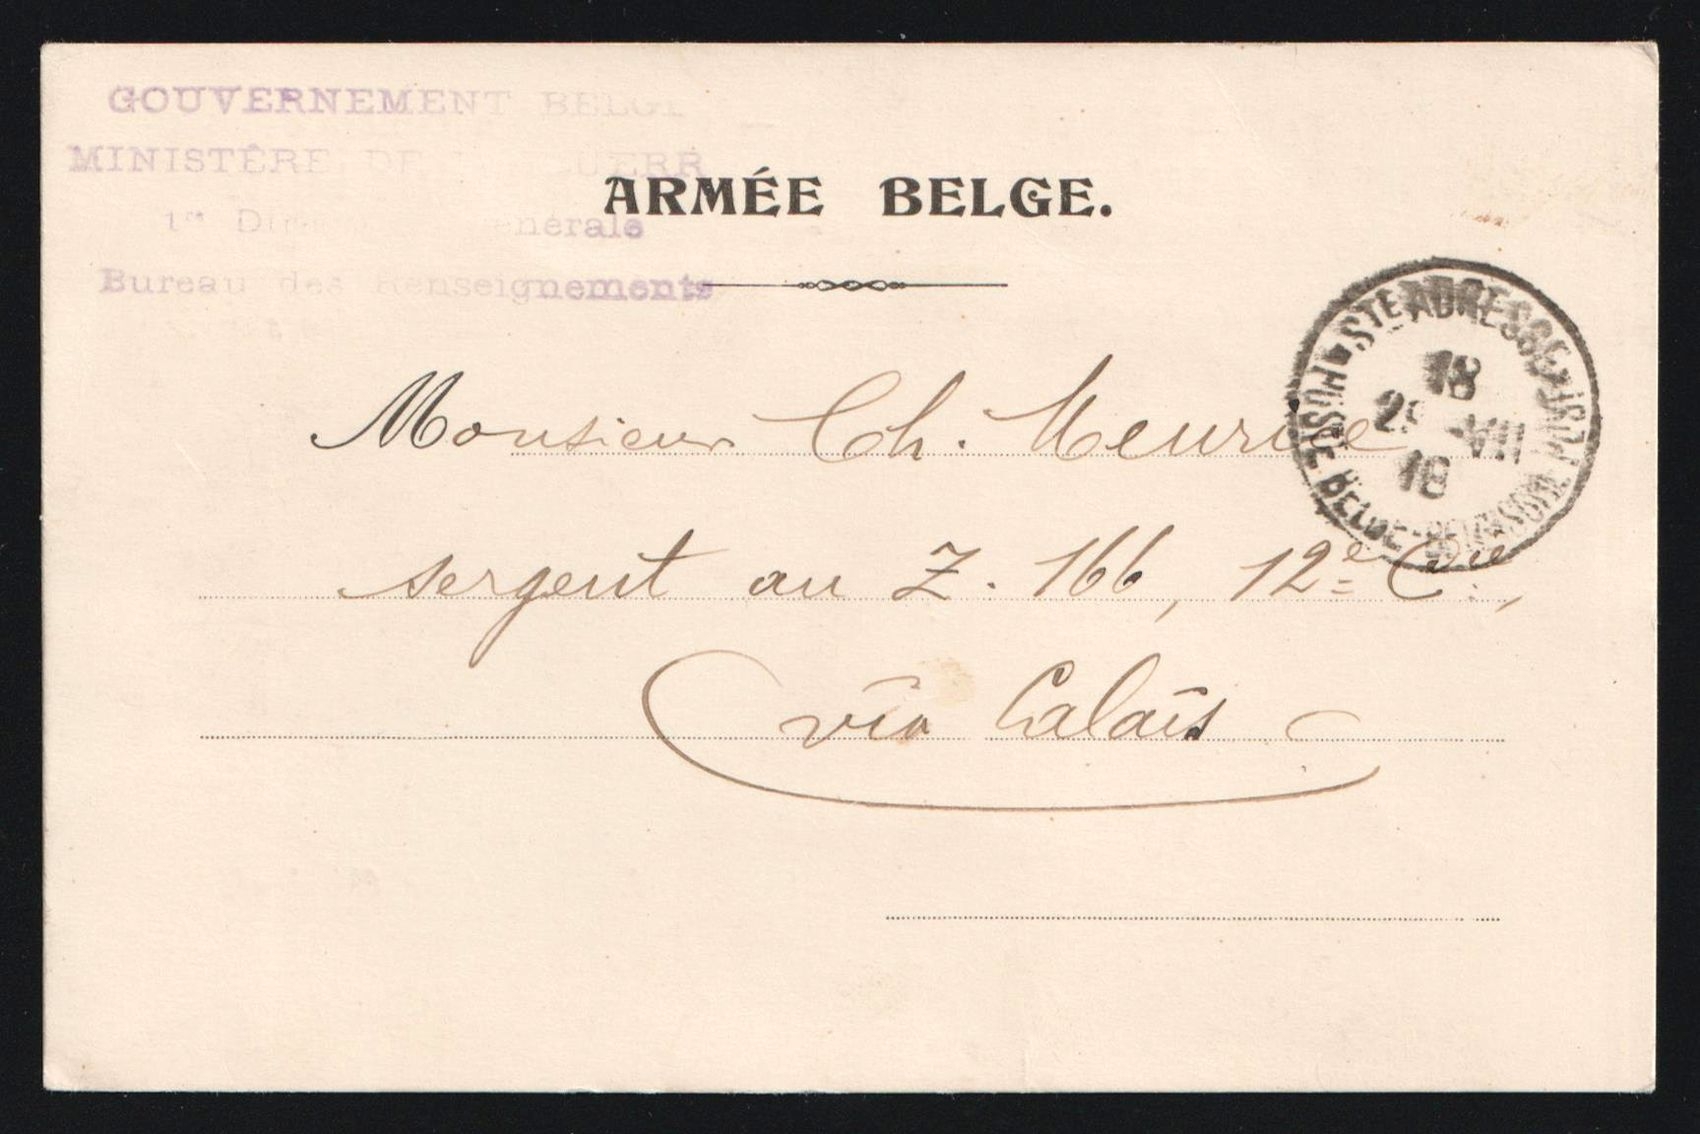 GOUVERNEMENT BELGE
MINISTÈRE DE LA GUERR
1re Dir générale
Bureau des Renseignements
ARMÉE BELGE.
STE ADRESSE
POSTE BELGE-BELGISCHE POST
18
VIII
18
Monsieur Ch. Meurice
sergent au Z. 166, 12e Cie,
via Calais